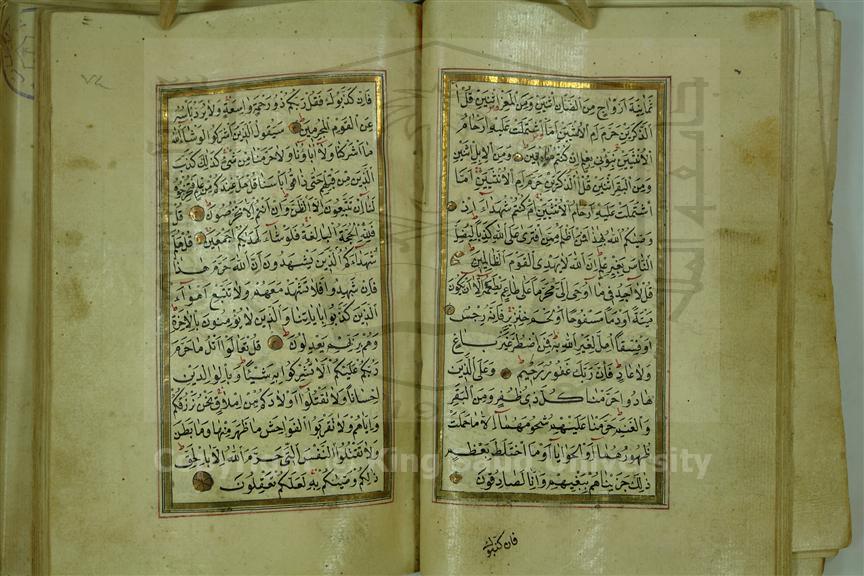 ثمانية ازواج من الضان اثنين ومن المعز اثنين قل آ
الذكرين حرم ام الانثيين اما اشتملت عليه ارحام
الانثيين نبؤنى بعلم ان كنتم صادقين ومن الابل اثنين
ومن البقر اثنين قل آالذكرين حرم ام الانثيين اما
اشتملت عليه ارحام الانثيين ام كنتم شهداء اذ
وصيكم الله بهذا فمن اظلم ممن افترى على الله كذبا ليضل
الناس بغير علم ان الله لا يهدى القوم الظالمين
قل لا اجد فى ما اوحى الى محرما على طاعم يطعمه الا ان يكون
ميتة او دما مسفوحا او لحم خنزير فانه رجس
او فسقا اهل لغير الله به فمن اضطر غير باغ
ولا عاد فان ربك غفور رحيم وعلى الذين
هادوا حرمنا كل ذى ظفر ومن البقر
والغنم حرمنا عليهم شحومهما الا ما حملت
ظهورهما او الحوايا او ما اختلط بعظم
ذلك جزيناهم ببغيهم وانا لصادقون
فان كذبوك
فان كذبوك فقل ربكم ذو رحمة واسعة ولا يرد باسه
عن القوم المجرمين سيقول الذين اشركوا لو شاء الله
ما اشركنا ولا اباؤنا ولا حرمنا من شئ كذلك كذب
الذين من قبلهم حتى ذاقوا باسنا قل هل عندكم من علم فتخرجوه
لنا ان تتبعون الا الظن وان انتم الا تخرصون قل
فلله الحجة البالغة فلو شاء لهديكم اجمعين قل هلم
شهداءكم الذين يشهدون ان الله حرم هذا
فان شهدوا فلا تشهد معهم ولا تتبع اهواء
الذين كذبوا باياتنا والذين لا يؤمنون بالاخرة
وهم بربهم يعدلون قل تعالوا اتل ما حرم
ربكم عليكم الا تشركوا به شيئا وبالوالدين
احسانا ولا تقتلوا اولادكم من املاق نحن نرزقكم
واياهم ولا تقربوا الفواحش ما ظهر منها وما بطن
ولا تقتلوا النفس التى حرم الله الا بالحق
ذلكم وصيكم به لعلكم تعقلون